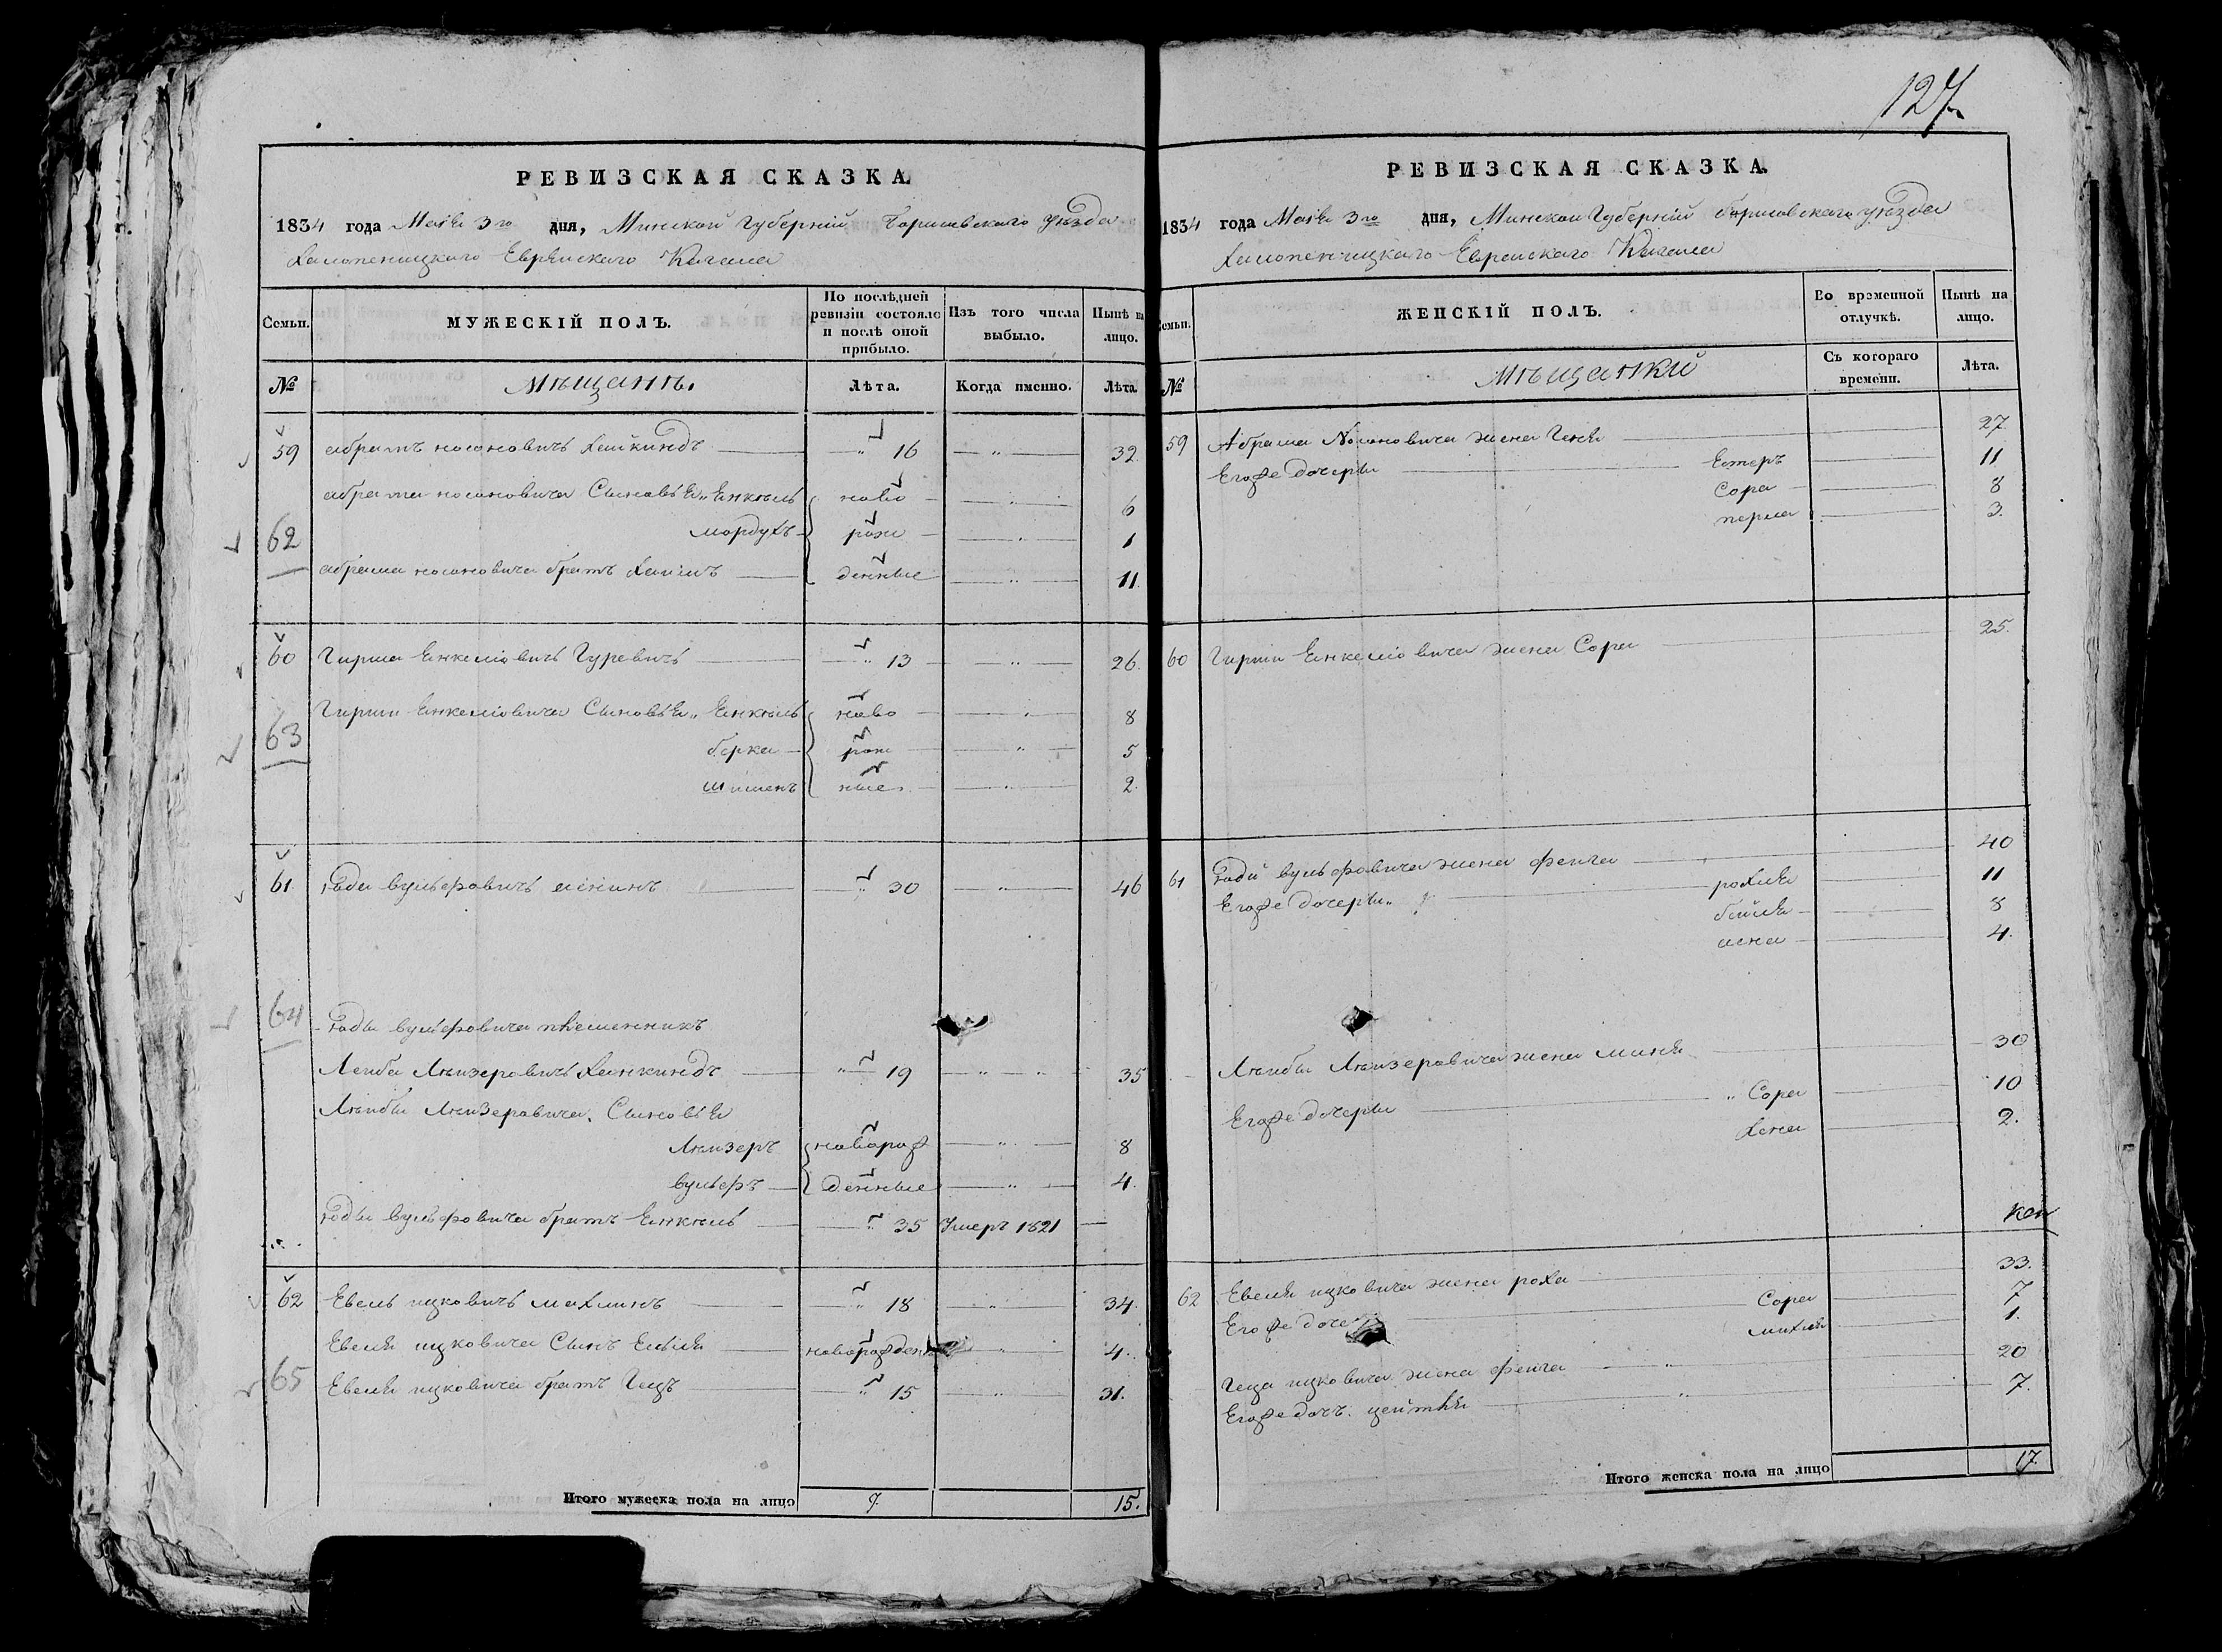 127.
РЕВИЗСКАЯ СКАЗКА.
1834 года Маія 3го дня, Минской Губерніи Борисовскаго уѣзда
Халопеницкаго Еврейскаго Кагала
Семьи.
МУЖЕСКІЙ ПОЛЪ.
По послѣдней ревизіи состояло и послѣ оной прибыло.
Изъ того числа выбыло.
Нынѣ на лицо.
№
Мѣщанѣ.
Лѣта.
Когда именно.
Лѣта.
59 абрамъ носоновичъ Хайкиндъ — " 16 — " — 32
абрама носоновича Сыновья " Енкѣль ново — " — 6
62
мордухъ рож — " — 1
абрама носоновича братъ Хаимъ денные — " — 11
60 Гирша Енкеліовичъ Гуревичъ — " 13 — " — 26.
Гирши Енкеліовича Сыновья " Енкѣль ново — " — 8
63
берка рож — " — 5
шименъ ные — " — 2.
61 вульфовичъ — " 30 — " — 46
64
вульфовича племенникъ
Лейба Лѣйзеровичъ Хайкиндъ — " 19 — " — 35
Лѣйбы Лѣйзеровича Сыновья
Лѣйзеръ поворож — " — 8
вульфъ денные — " — 4.
вульфовича братъ Енкѣль — " 35 Умеръ 1821 —
62 Евель ицковичъ Махлинъ — " 18 — " — 34.
Евеля ицковича Сынъ новорожден — " — 4.
65
Евеля ицковича братъ Гецъ — " 15 — " — 31.
Итого мужеска пола на лицо 9. 15.
РЕВИЗСКАЯ СКАЗКА.
1834 года Маія 3го дня, Минской Губерніи Борисовскаго уѣзда
Халопеницкаго Еврейскаго Кагала
Семьи.
ЖЕНСКІЙ ПОЛЪ.
Во временной отлучкѣ.
Нынѣ на лицо.
№
Мѣщанки
Съ котораго времени.
Лѣта.
59 Абрама Носоновича жена Геня — 27
Егоже дочери — Естеръ — 11
Сора — 8
перла — 3.
60 Гирши Енкеліовича жена Сора — 25.
61 вульфовича жена фейга — 40
Егоже дочери " — рохля — 11
бейля — 8
асна — 4.
Лѣйбы Лѣйзеровича жена миня — 30
Егоже дочери — " Сора — 10
Хена — 2.
62 Евеля ицковича жена роха — 33.
Егоже доче — Сора — 7
михля — 1.
Геца ицковича жена фейга — " — 20
Егоже дочь цейтля — " — 7.
Итого женска пола на лицо 17.